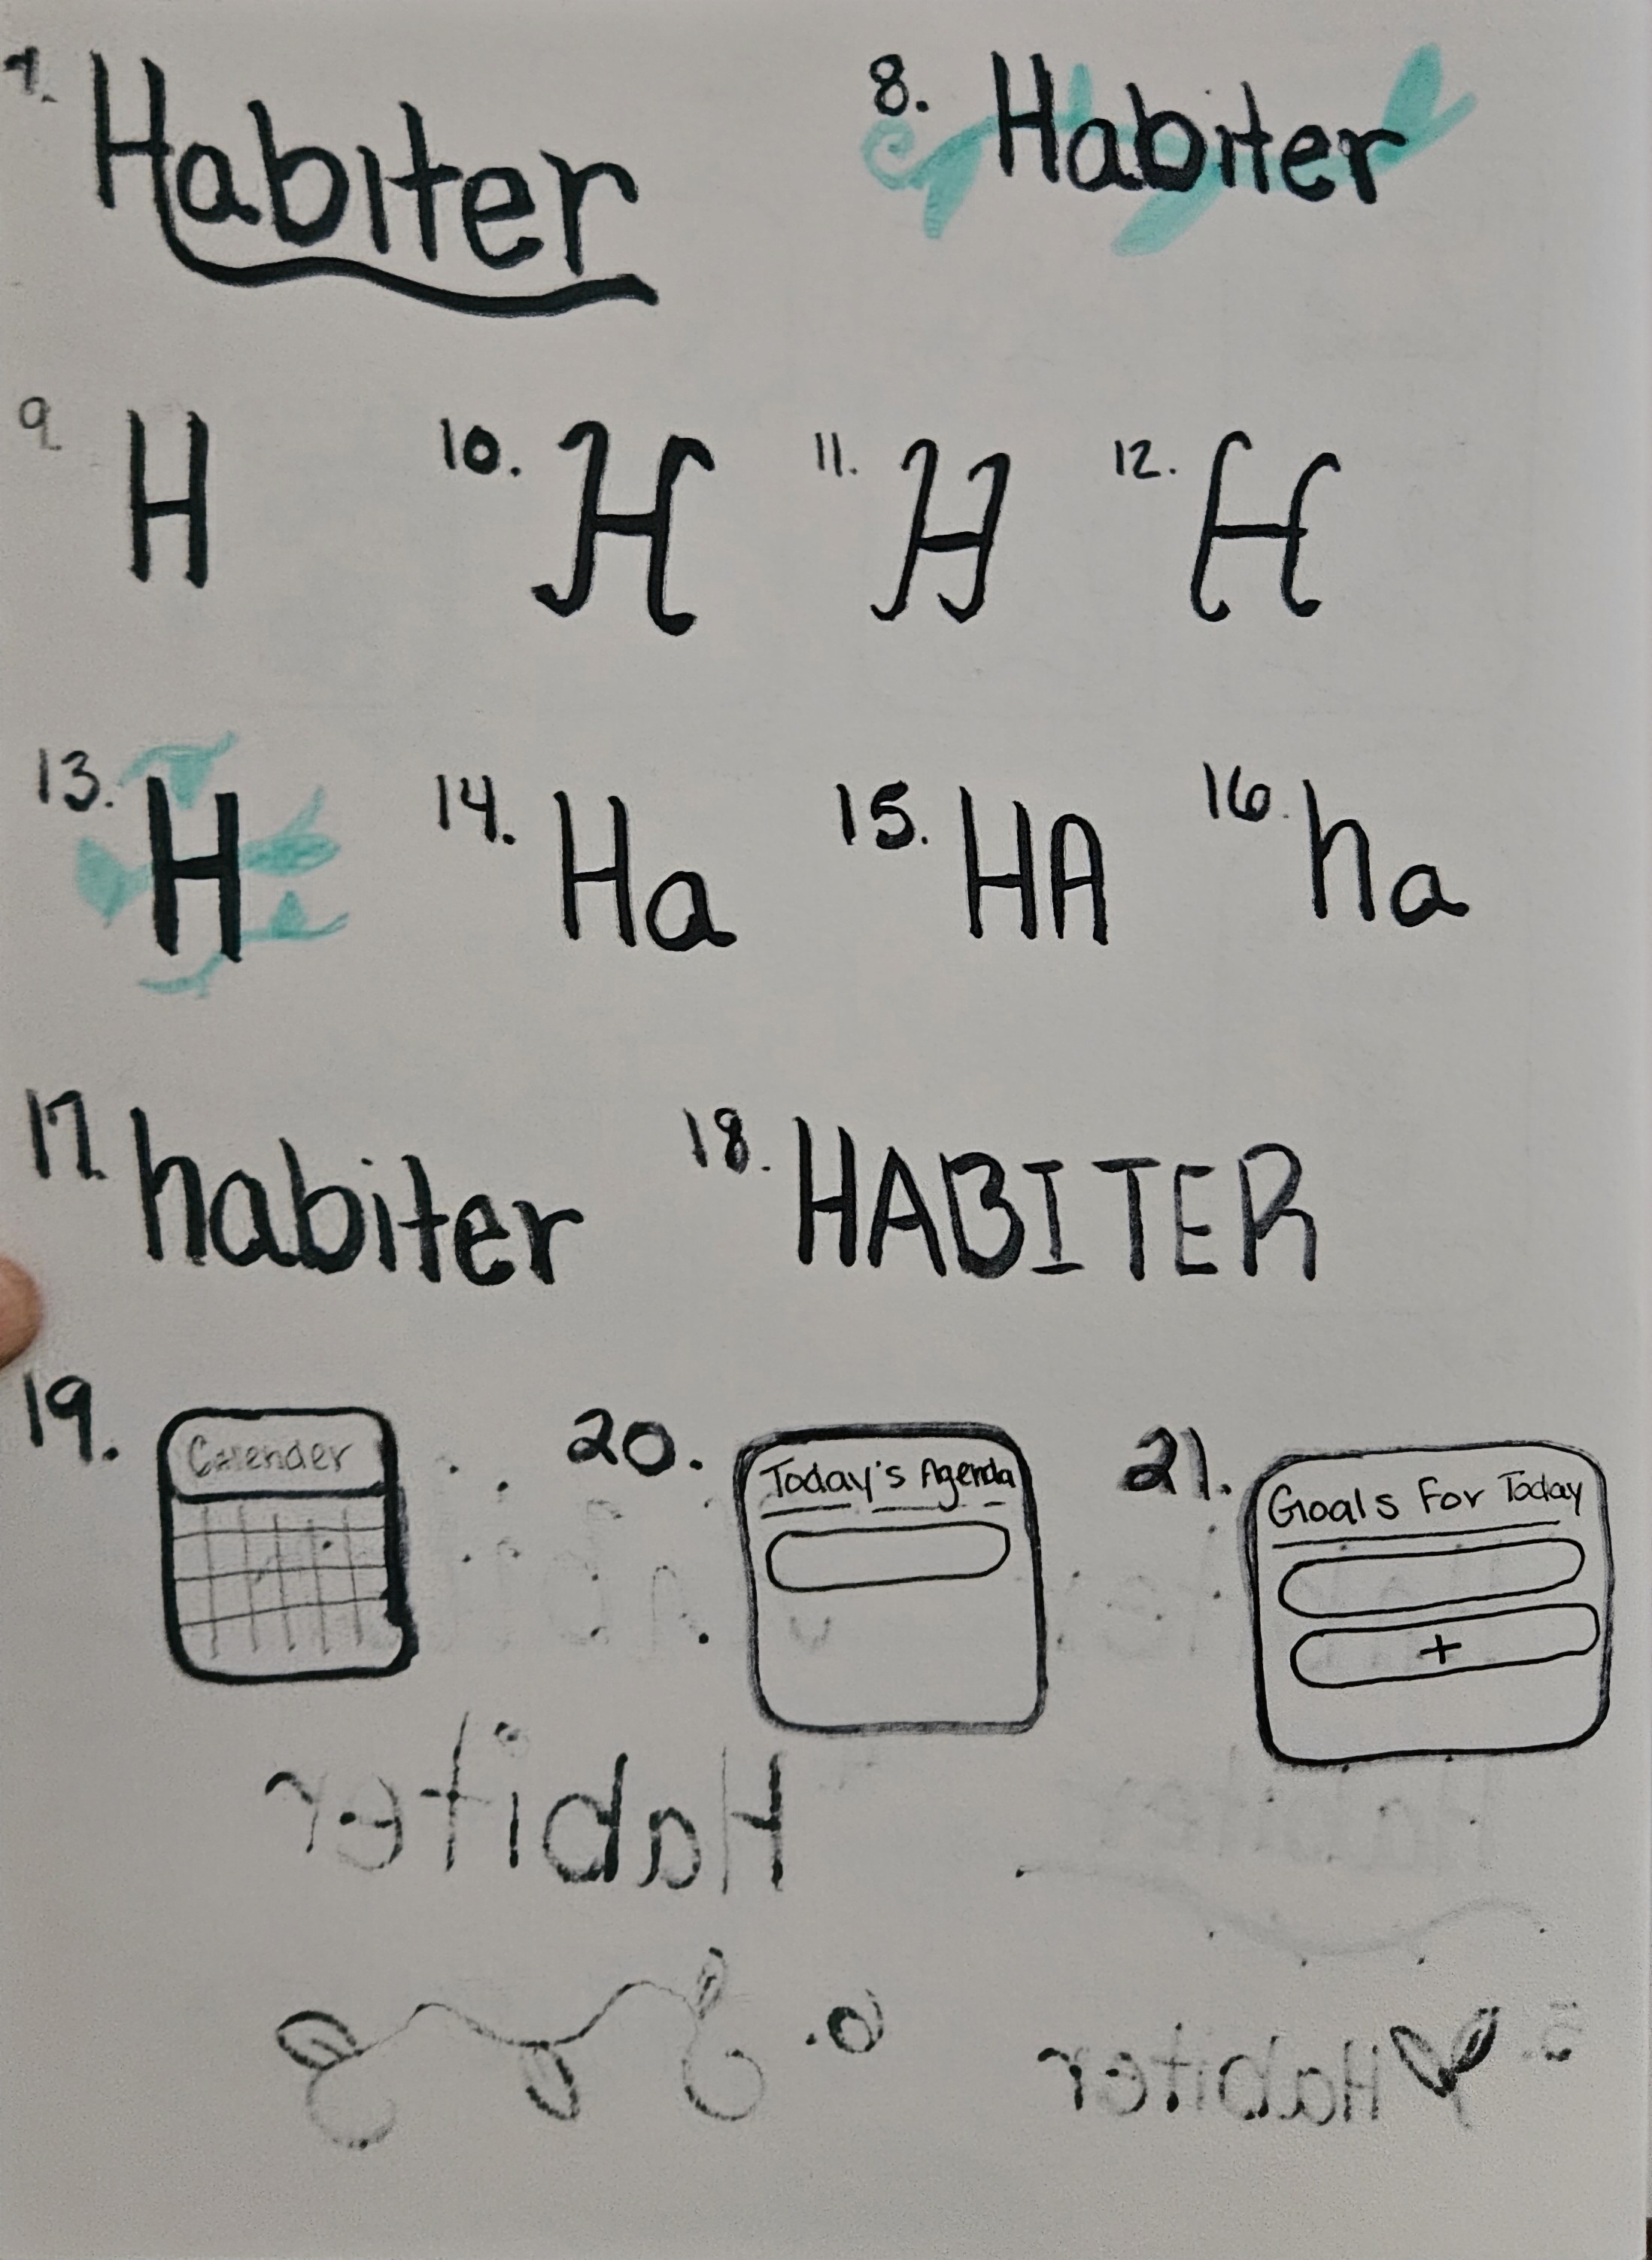 7. Habiter
8. Habiter
9. H
10. H
11. H
12. H
13. H
14. Ha
15. HA
16. ha
17. habiter
18. HABITER
19. Calender
20. Today's Agenda
21. Goals For Today
+
Habiter
6.
5. Habiter